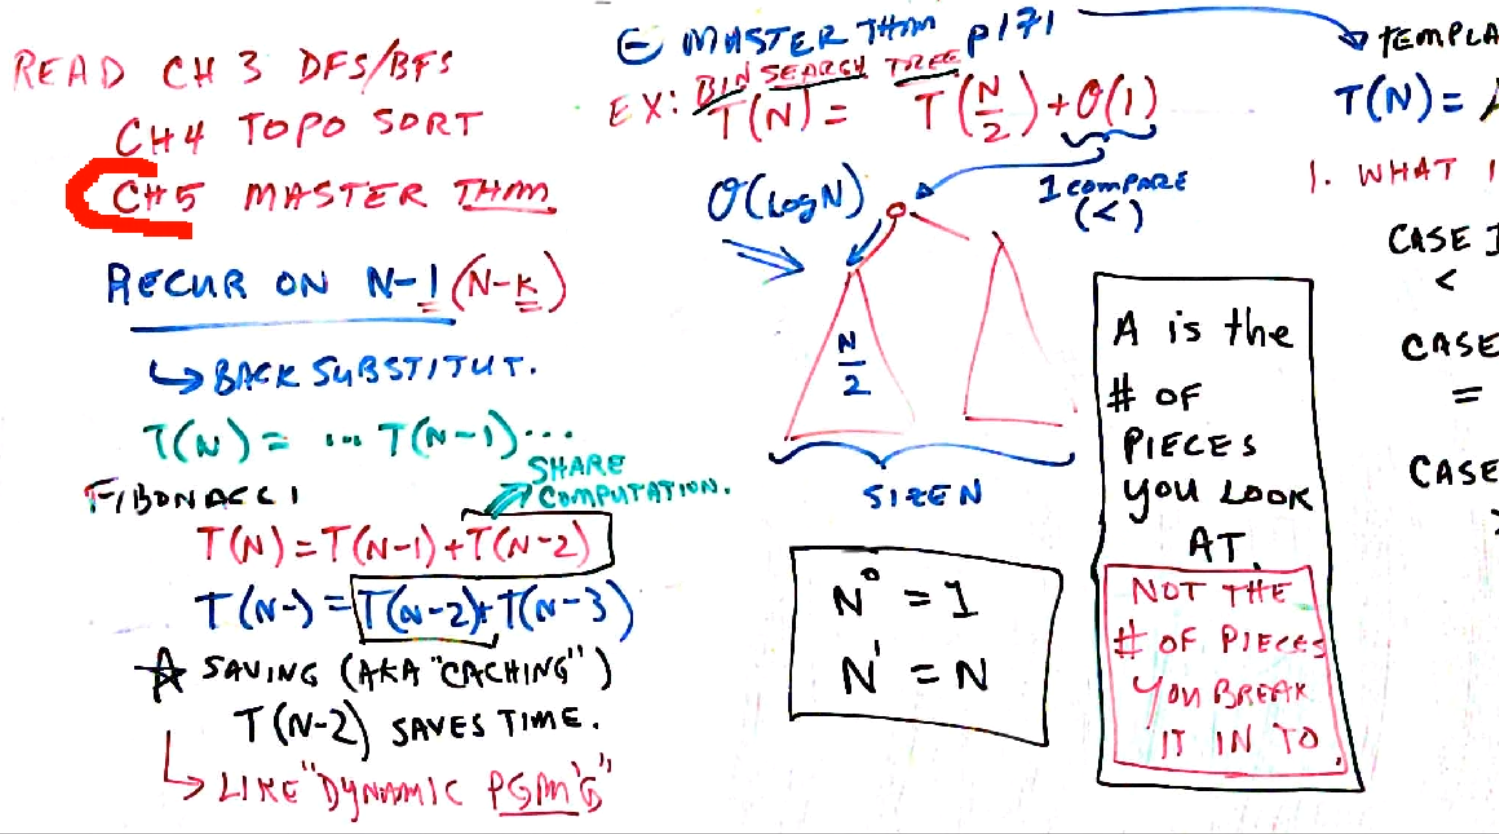 READ CH 3 DFS/BFS
CH4 TOPO SORT
CH5 MASTER THM
RECUR ON N-1 (N-K)
↳ BACK SUBSTITUT.
T(N) = ... T(N-1) ...
SHARE
COMPUTATION.
FIBONACCI
T(N) = T(N-1) + T(N-2)
T(N-) = T(N-2) + T(N-3)
☆ SAVING (AKA "CACHING")
T(N-2) SAVES TIME.
↳ LIKE "DYNAMIC PGM'G"
MASTER THM p171
BIN SEARCH TREE
EX: T(N) = T(N/2) + O(1)
O(LOGN)
1 COMPARE
(<)
N/2
SIZE N
N⁰ = 1
N¹ = N
A is the
# OF
PIECES
YOU LOOK
AT.
NOT THE
# OF PIECES
YOU BREAK
IT IN TO
TEMPLA
T(N) =
1. WHAT
CASE
<
CASE
=
CASE